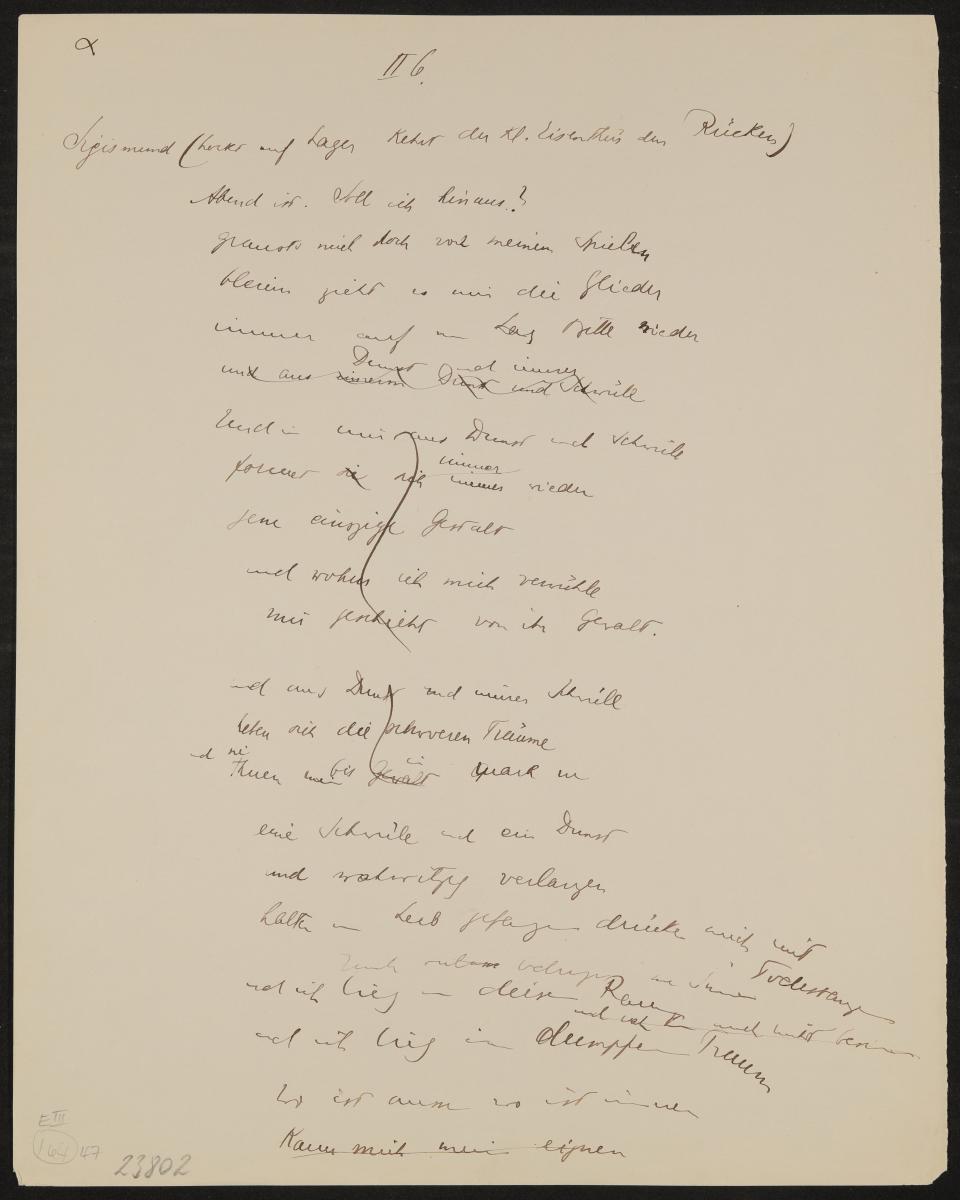 α
II 6.
Sigismund (hockt auf Lager kehrt der kl. Eisenthür den Rücken)
Abend ist. Soll ich hinaus?
grausts mich doch vor meinen Spielen
bleiern zieht es mir die Glieder
immer auf m Lag Bette wieder
Dunst und innrer
und aus innerm Dunst und Schwüle
Und in mir aus Dunst und Schwüle
formet sie sich immer wieder
immer
jene einzige Gestalt
und wohin ich mich verwühle
mir geschieht von ihr Gewalt.
und aus Dunst und innrer Schwüle
heben sich die schweren Träume
und mir
thuen bis ins Gewalt Mark
eine Schwüle und ein Dunst
und wahnwitzig verlangen
halten Leib gefangen drücken mich mit Todesstangen
und ich lieg in diesem Raum
und ich kann mich nicht
und ich lieg im dumpfen Traum
Wo ist aussen wo ist innen
Kann mich mein eignen
E III
164 47
23802